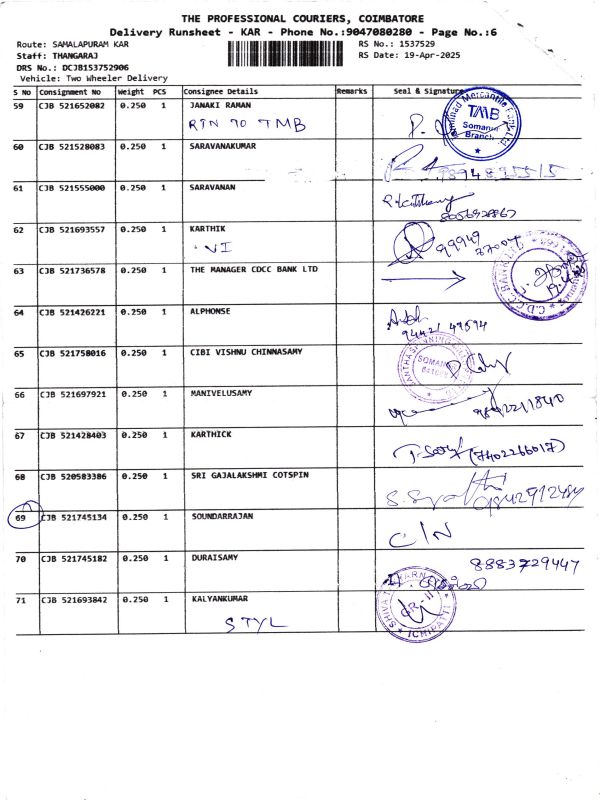 THE PROFESSIONAL COURIERS, COIMBATORE
Delivery Runsheet - KAR - Phone No.:9047080280 - Page No.:6
Route: SAMALAPURAM KAR
RS No.: 1537529
Staff: THANGARAJ
RS Date: 19-Apr-2025
DRS No.: DCJB153752906
Vehicle: Two Wheeler Delivery
S No Consignment No Weight PCS Consignee Details Remarks Seal & Signature
59 CJB 521652082 0.250 1 JANAKI RAMAN
RTN TO TMB
TMB
Somanur
Branch
60 CJB 521528083 0.250 1 SARAVANAKUMAR
61 CJB 521555000 0.250 1 SARAVANAN
62 CJB 521693557 0.250 1 KARTHIK
VI
99949
77004
63 CJB 521736578 0.250 1 THE MANAGER CDCC BANK LTD
C.D.C.C BANK LTD
64 CJB 521426221 0.250 1 ALPHONSE
94421 49594
65 CJB 521758016 0.250 1 CIBI VISHNU CHINNASAMY
66 CJB 521697921 0.250 1 MANIVELUSAMY
67 CJB 521428403 0.250 1 KARTHICK
(7402266017)
68 CJB 520583386 0.250 1 SRI GAJALAKSHMI COTSPIN
69 CJB 521745134 0.250 1 SOUNDARRAJAN
C/N
70 CJB 521745182 0.250 1 DURAISAMY
8883729447
71 CJB 521693842 0.250 1 KALYANKUMAR
STYL
ICHIPATTI